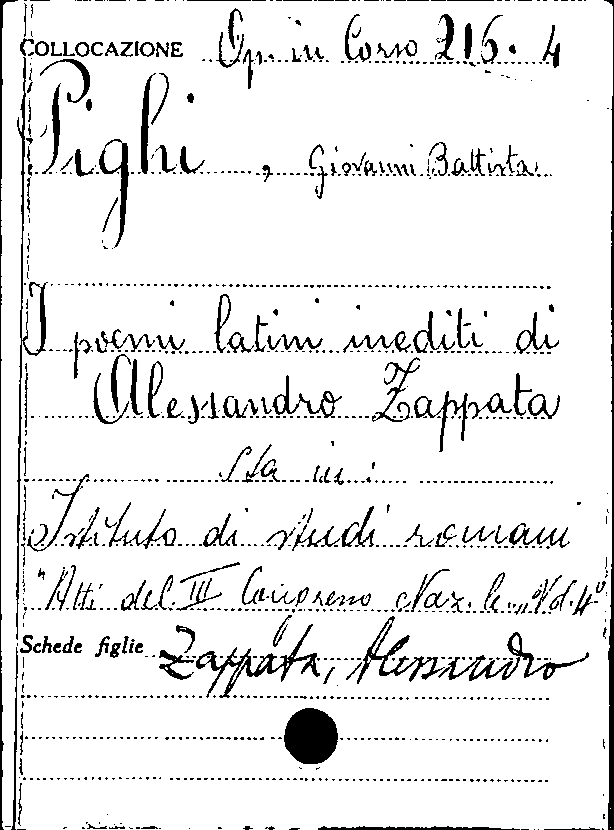 COLLOCAZIONE Op. in Corso 216. 4
Pighi, Giovanni Battista
I poemi latini inediti di
Alessandro Zappata
sta in:
Istituto di studi romani
"Atti del III Congresso Naz.le„ Vol. 4°
Schede figlie Zappata, Alessandro